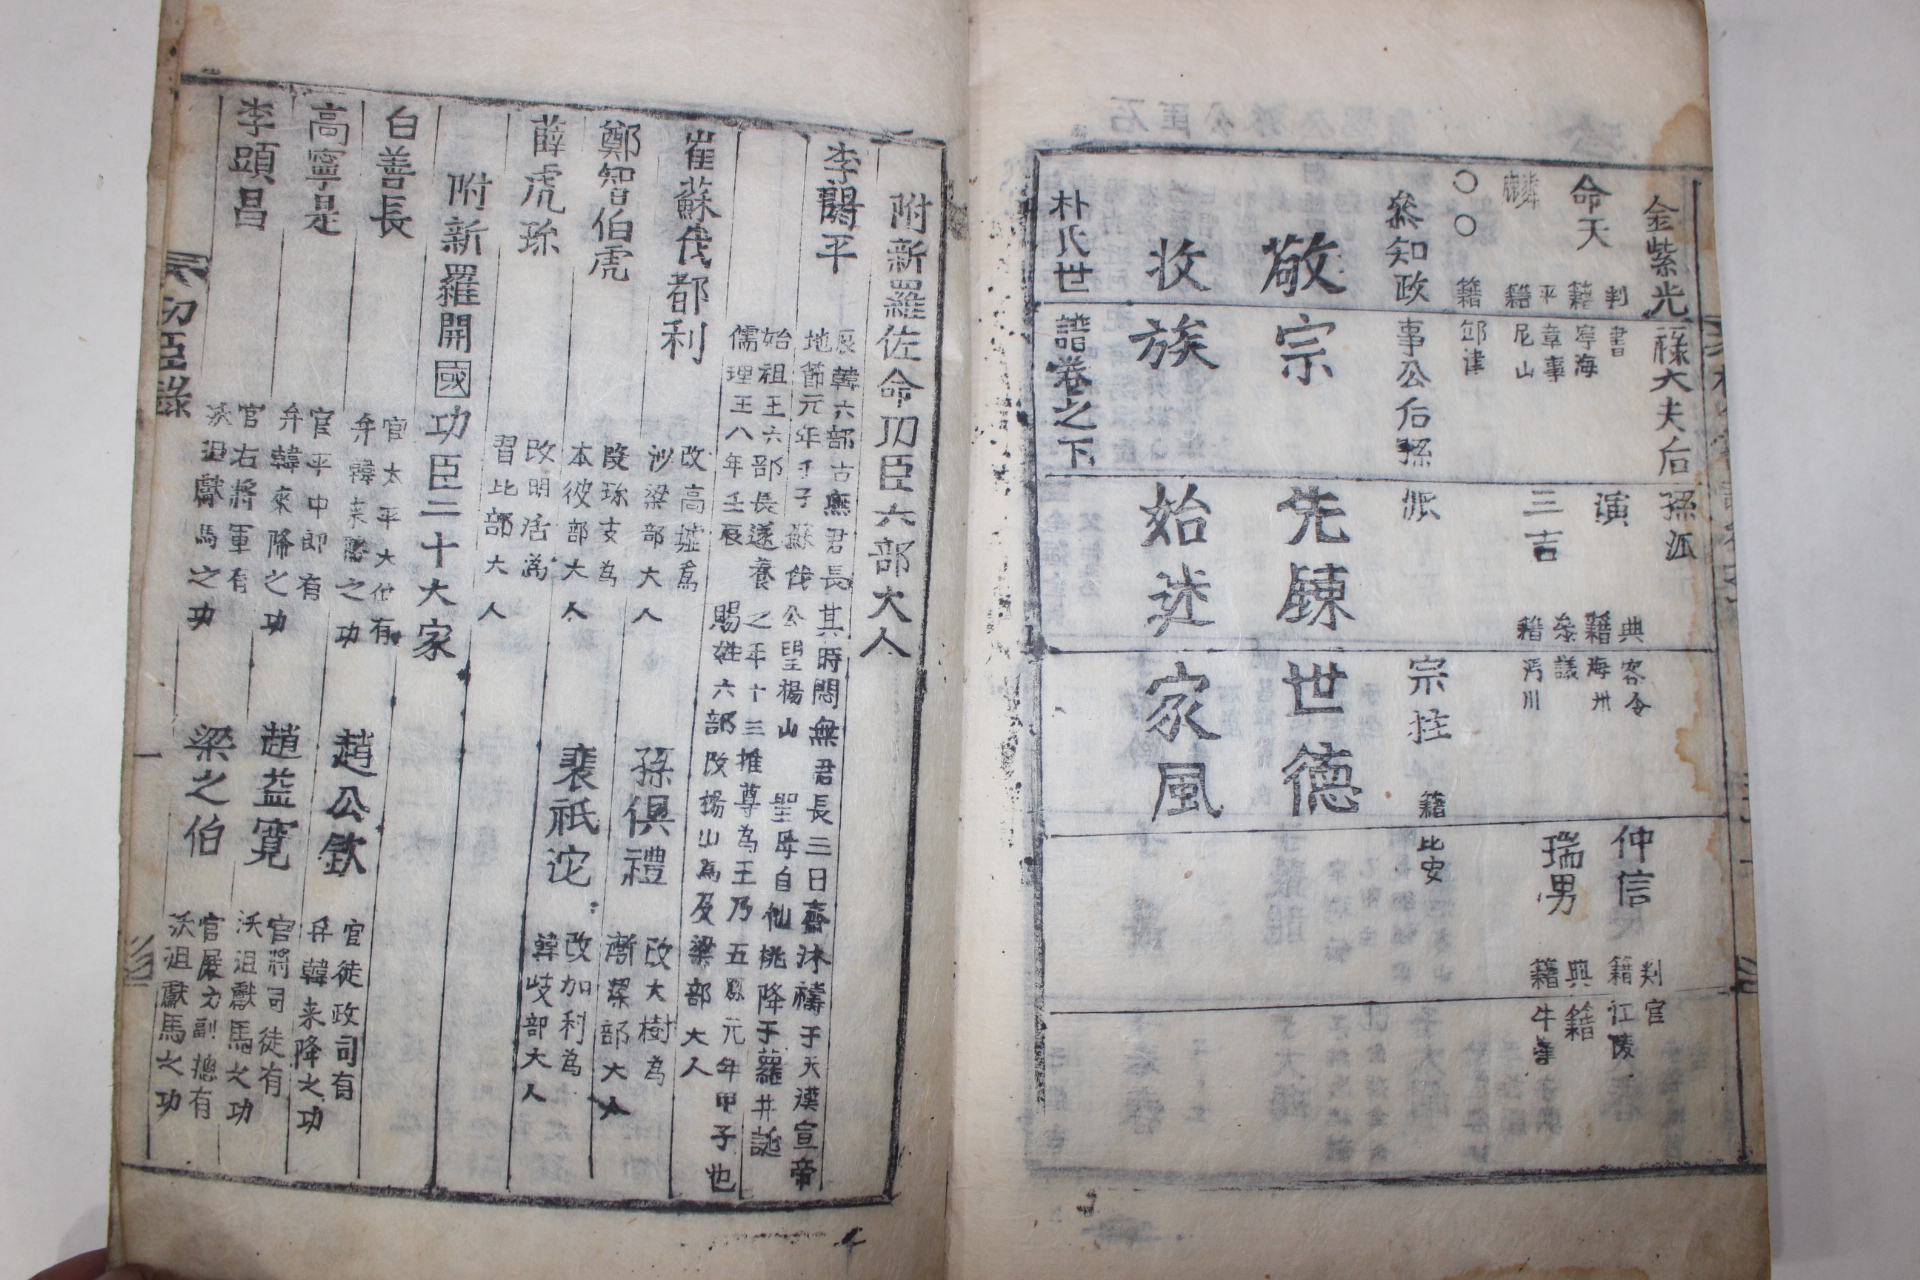 金紫光祿大夫后孫派
命天 判書 籍寧海
演 典客令 籍海州
仲信 判官 籍江陵
麟 平章事 籍尼山
三吉 參議 籍沔川
瑞男 典籍 籍牛峯
○○ 籍邱津
叅知政事公后孫派
宗柱 籍比安
敬宗先諫世德
收族始述家風
朴氏世譜卷之下
附新羅佐命功臣六部大人
李謁平
辰韓六部古無君長其時悶無君長三日齋沐禱于天漢宣帝
地節元年壬子蘇伐公聖楊山 聖母自仙桃降于蘿井誕
始祖王六部長遂養之年十三推尊為王乃五鳳元年甲子也
儒理王八年壬辰 賜姓六部改楊山為及梁部大人
崔蘇伐都利 改高墟為沙梁部大人
孫俱禮 改大樹為漸梁部大人
鄭智伯虎 改珍支為本彼部大人
裴祇沱 改加利為韓岐部大人
薛虎珎 改明活為習比部大人
附新羅開國功臣三十大家
白善長 官太平大使有弁韓来降之功
趙公欽 官徒政司有弁韓来降之功
高寧是 官平中郎有弁韓來降之功
趙益寬 官將司徒有沃沮獻馬之功
李顗昌 官右將軍有沃沮獻馬之功
梁之伯 官展力副摠有沃沮獻馬之功
功臣錄
一